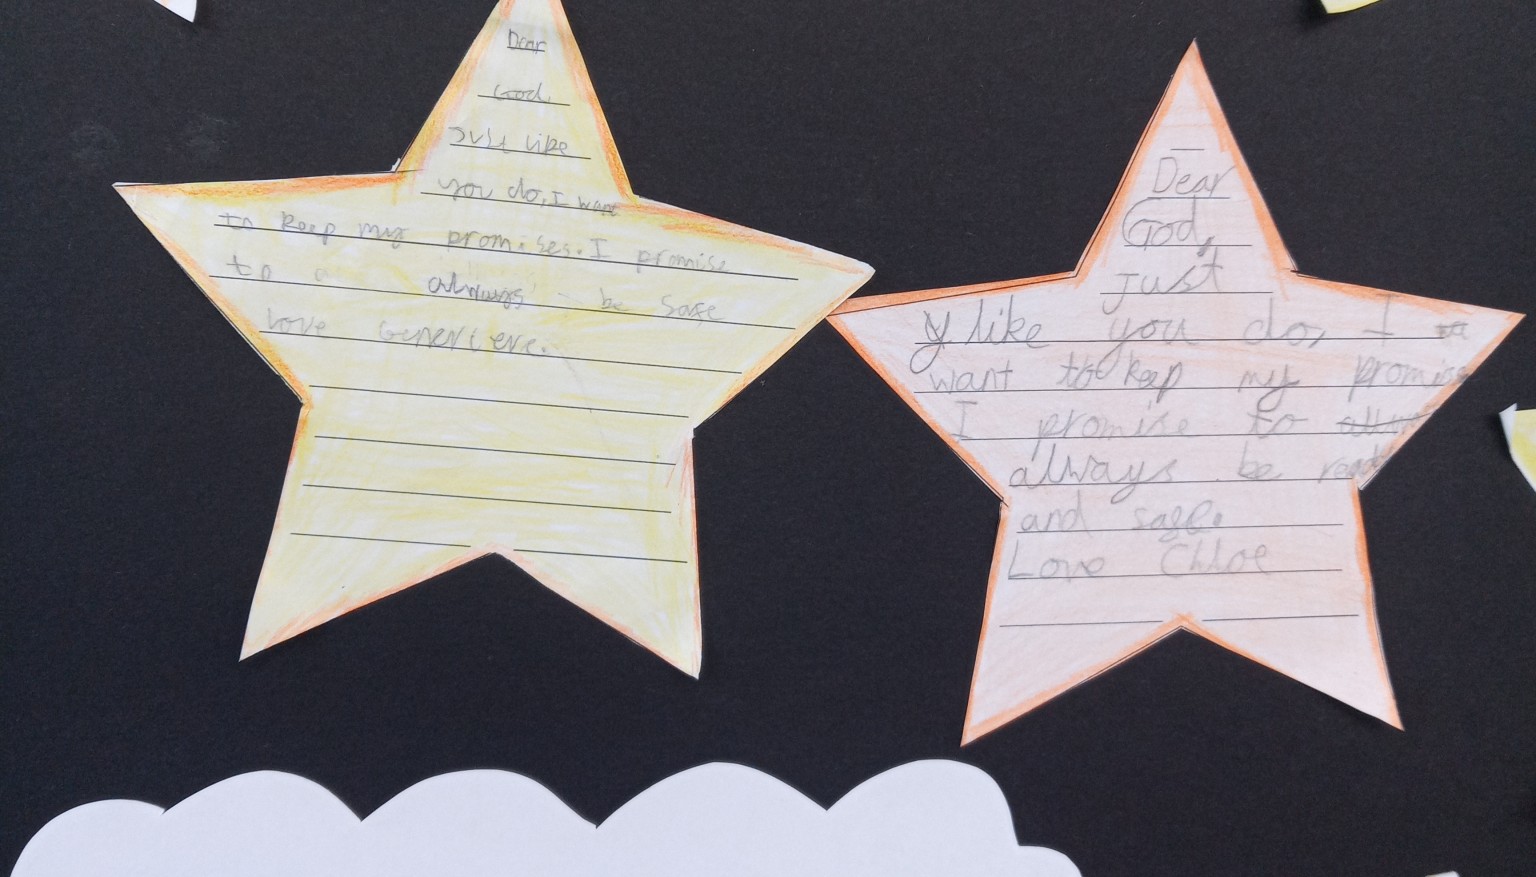 Dear
God
Just like
you do, I want
to keep my promises. I promise
to always be safe
love Genevieve.
Dear
God,
Just
like you do, I
want to keep my promise
I promise to
always be ready
and safe.
Love Chloe